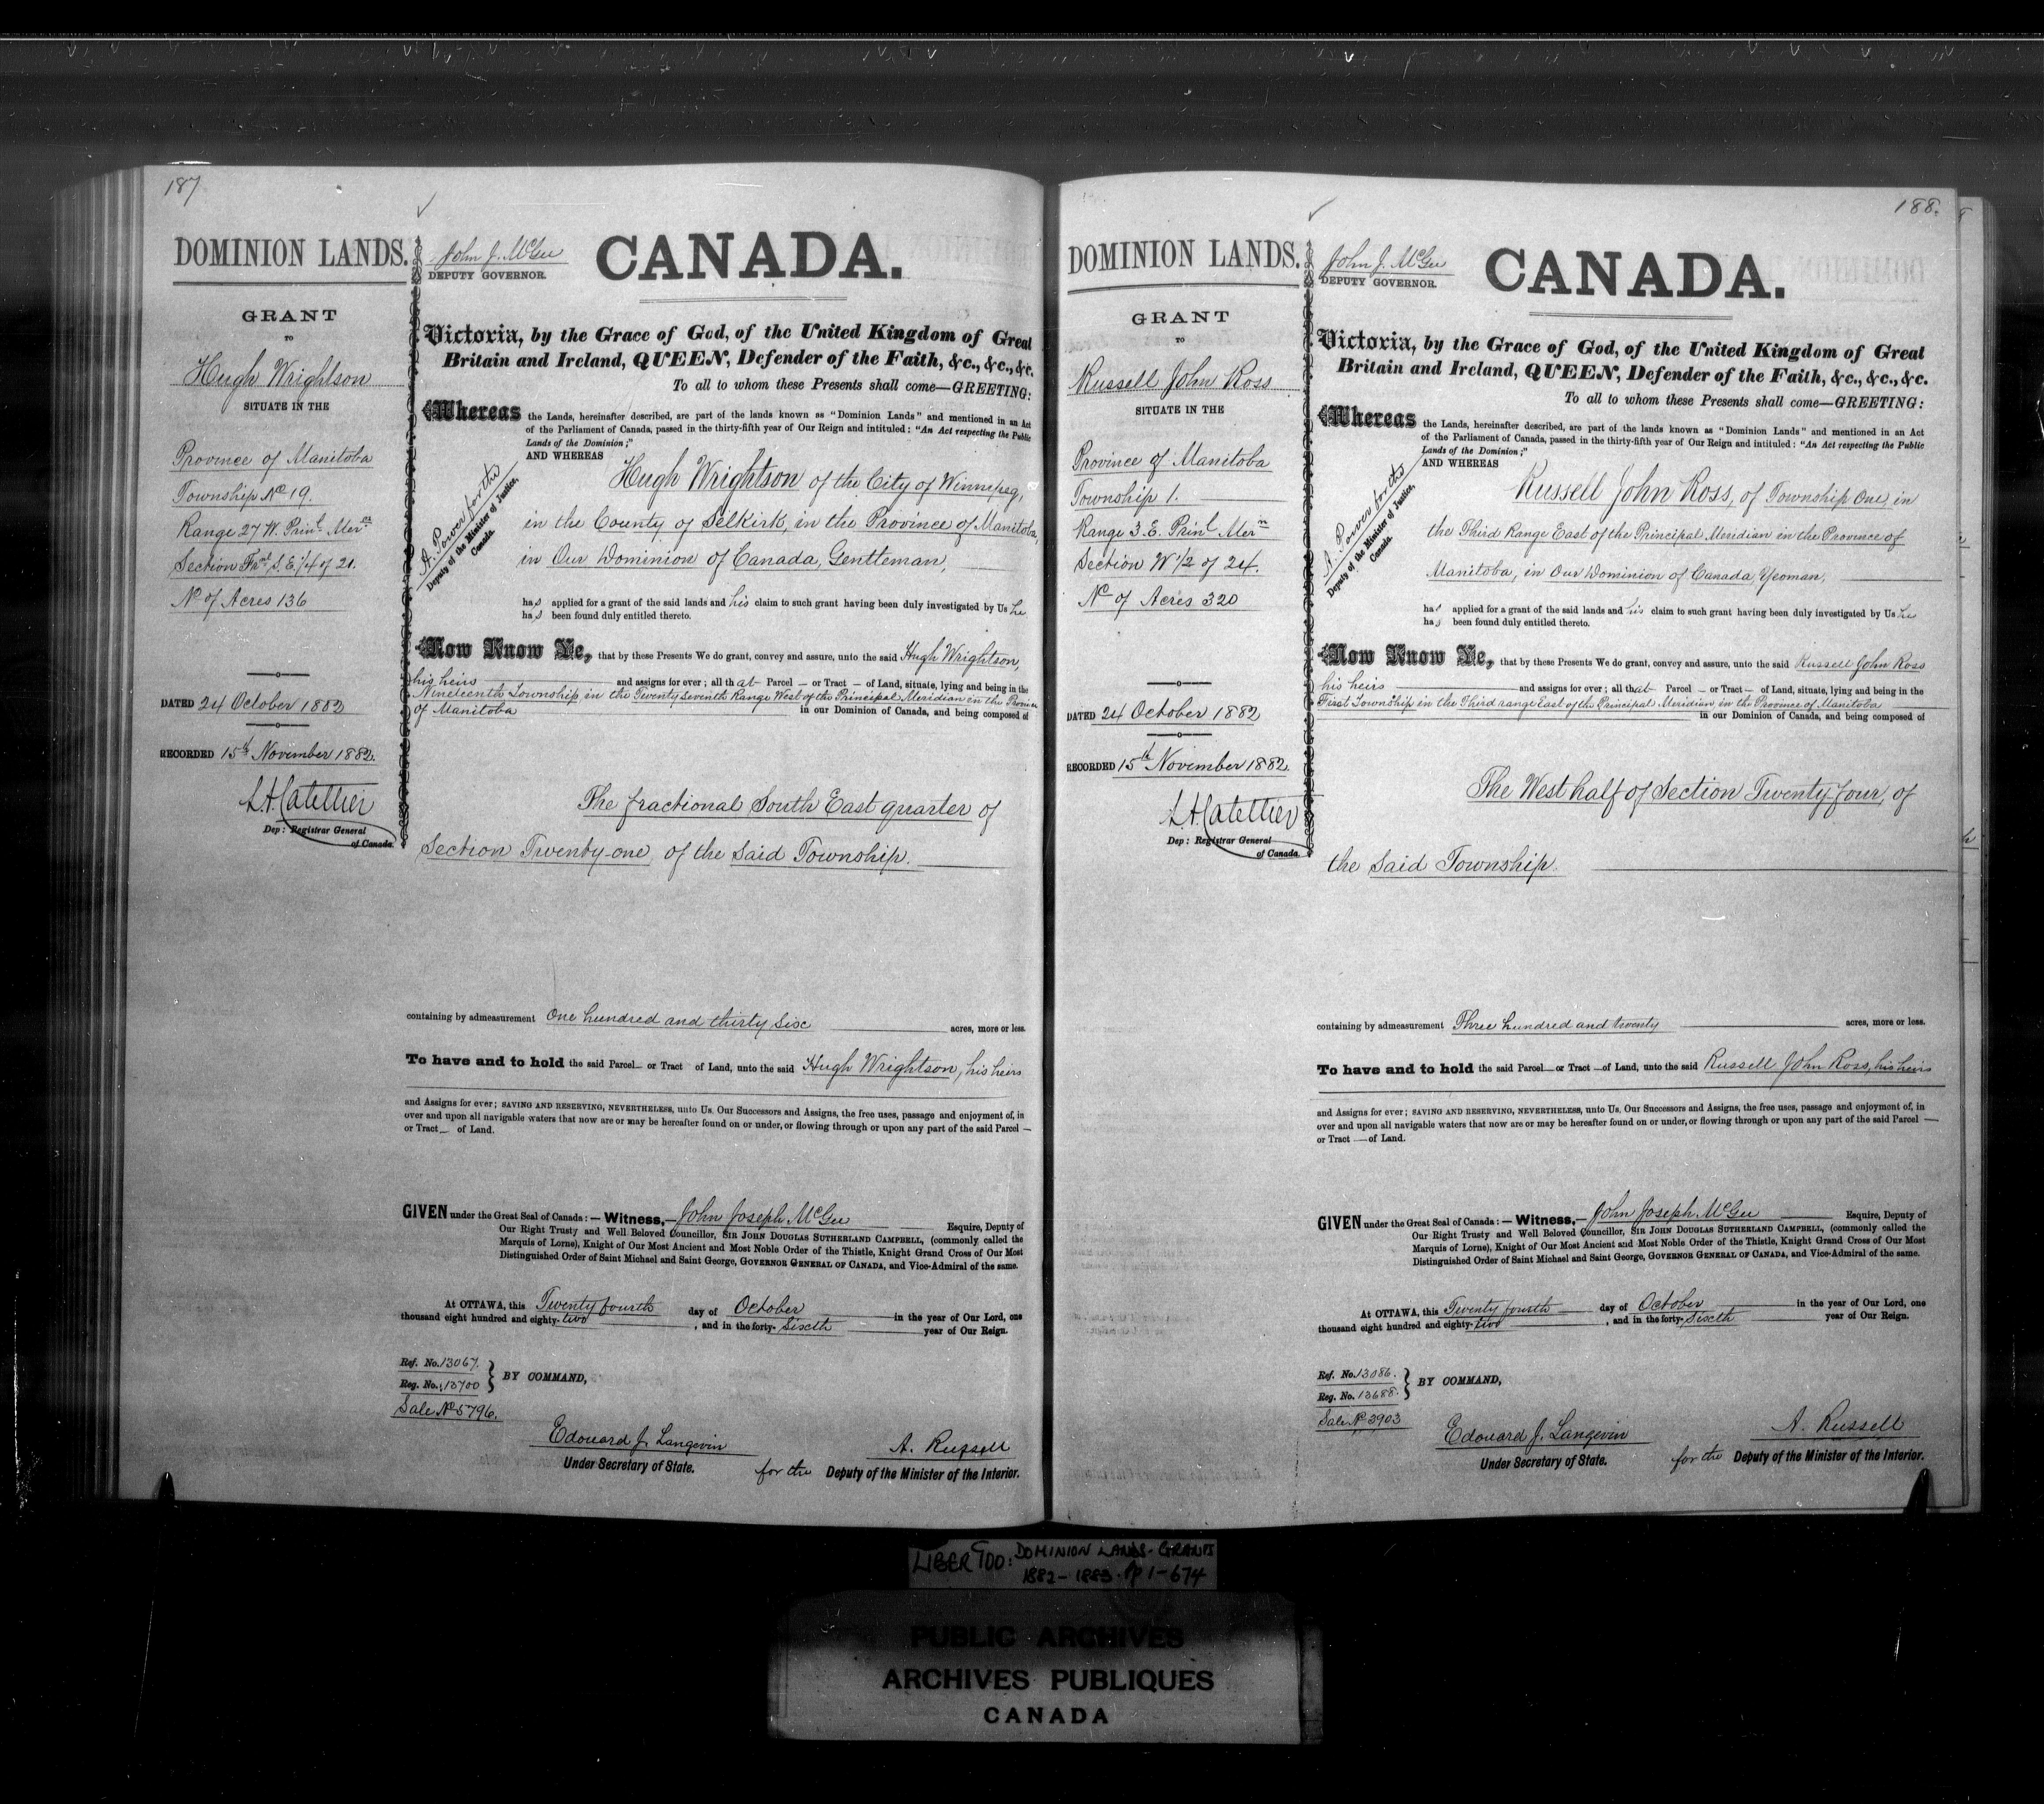 187
DOMINION LANDS.
GRANT
TO
Hugh Wrightson
SITUATE IN THE
Province of Manitoba
Township No 19.
Range 27 W. Prinl. Meren
Section Fral S. E. 1/4 of 21.
No of Acres 136
DATED 24 October 1882
RECORDED 15th November 1882.
L. A. Catellier
Dep: Registrar General
of Canada.
John J. McGee
DEPUTY GOVERNOR.
CANADA.
Victoria, by the Grace of God, of the United Kingdom of Great
Britain and Ireland, QUEEN, Defender of the Faith, &c., &c., &c.
To all to whom these Presents shall come—GREETING:
Whereas the Lands, hereinafter described, are part of the lands known as "Dominion Lands" and mentioned in an Act
of the Parliament of Canada, passed in the thirty-fifth year of Our Reign and intituled: "An Act respecting the Public
Lands of the Dominion;"
AND WHEREAS
A. Power for the
Deputy of the Minister of Justice,
Canada.
Hugh Wrightson of the City of Winnipeg,
in the County of Selkirk, in the Province of Manitoba,
in Our Dominion of Canada, Gentleman,
has applied for a grant of the said lands and his claim to such grant having been duly investigated by Us he
has been found duly entitled thereto.
Now Know Ye, that by these Presents We do grant, convey and assure, unto the said Hugh Wrightson,
his heirs and assigns for ever; all that Parcel — or Tract — of Land, situate, lying and being in the
Nineteenth Township in the Twenty seventh Range West of the Principal Meridian in the Province
of Manitoba in our Dominion of Canada, and being composed of
The fractional South East quarter of
Section Twenty-one of the said Township.
containing by admeasurement One hundred and thirty six acres, more or less.
To have and to hold the said Parcel— or Tract — of Land, unto the said Hugh Wrightson, his heirs
and Assigns for ever; SAVING AND RESERVING, NEVERTHELESS, unto Us. Our Successors and Assigns, the free uses, passage and enjoyment of, in
over and upon all navigable waters that now are or may be hereafter found on or under, or flowing through or upon any part of the said Parcel —
or Tract — of Land.
GIVEN under the Great Seal of Canada: — Witness,— John Joseph McGee Esquire, Deputy of
Our Right Trusty and Well Beloved Councillor, SIR JOHN DOUGLAS SUTHERLAND CAMPBELL, (commonly called the
Marquis of Lorne), Knight of Our Most Ancient and Most Noble Order of the Thistle, Knight Grand Cross of Our Most
Distinguished Order of Saint Michael and Saint George, GOVERNOR GENERAL OF CANADA, and Vice-Admiral of the same.
At OTTAWA, this Twenty fourth day of October in the year of Our Lord, one
thousand eight hundred and eighty-two, and in the forty-sixth year of Our Reign.
Ref. No. 13067.
Reg. No. 13700
BY COMMAND,
Sale No 5796.
Edouard J. Langevin
Under Secretary of State.
A. Russell
for the Deputy of the Minister of the Interior.
188.
DOMINION LANDS.
GRANT
TO
Russell John Ross
SITUATE IN THE
Province of Manitoba
Township 1.
Range 3. E. Prinl Mern
Section W 1/2 of 24.
No of Acres 320
DATED 24 October 1882
RECORDED 15th November 1882.
L. A. Catellier
Dep: Registrar General
of Canada.
John J. McGee
DEPUTY GOVERNOR.
CANADA.
Victoria, by the Grace of God, of the United Kingdom of Great
Britain and Ireland, QUEEN, Defender of the Faith, &c., &c., &c.
To all to whom these Presents shall come—GREETING:
Whereas the Lands, hereinafter described, are part of the lands known as "Dominion Lands" and mentioned in an Act
of the Parliament of Canada, passed in the thirty-fifth year of Our Reign and intituled: "An Act respecting the Public
Lands of the Dominion;"
AND WHEREAS
A. Power for the
Deputy of the Minister of Justice,
Canada.
Russell John Ross, of Township One, in
the Third Range East of the Principal Meridian in the Province of
Manitoba, in Our Dominion of Canada, Yeoman,
has applied for a grant of the said lands and his claim to such grant having been duly investigated by Us he
has been found duly entitled thereto.
Now Know Ye, that by these Presents We do grant, convey and assure, unto the said Russell John Ross
his heirs and assigns for ever; all that Parcel — or Tract — of Land, situate, lying and being in the
First Township in the Third range East of the Principal Meridian, in the Province of Manitoba
in our Dominion of Canada, and being composed of
The West half of Section Twenty four, of
the said Township.
containing by admeasurement Three hundred and twenty acres, more or less.
To have and to hold the said Parcel— or Tract — of Land, unto the said Russell John Ross, his heirs
and Assigns for ever; SAVING AND RESERVING, NEVERTHELESS, unto Us. Our Successors and Assigns, the free uses, passage and enjoyment of, in
over and upon all navigable waters that now are or may be hereafter found on or under, or flowing through or upon any part of the said Parcel —
or Tract — of Land.
GIVEN under the Great Seal of Canada: — Witness,— John Joseph McGee Esquire, Deputy of
Our Right Trusty and Well Beloved Councillor, SIR JOHN DOUGLAS SUTHERLAND CAMPBELL, (commonly called the
Marquis of Lorne), Knight of Our Most Ancient and Most Noble Order of the Thistle, Knight Grand Cross of Our Most
Distinguished Order of Saint Michael and Saint George, GOVERNOR GENERAL OF CANADA, and Vice-Admiral of the same.
At OTTAWA, this Twenty fourth day of October in the year of Our Lord, one
thousand eight hundred and eighty-two, and in the forty-sixth year of Our Reign.
Ref. No. 13086.
Reg. No. 13688.
BY COMMAND,
Sale No 3903
Edouard J. Langevin
Under Secretary of State.
A. Russell
for the Deputy of the Minister of the Interior.
DOMINION LANDS-GRANTS
1882-1883. Pp 1-674
PUBLIC ARCHIVES
ARCHIVES PUBLIQUES
CANADA